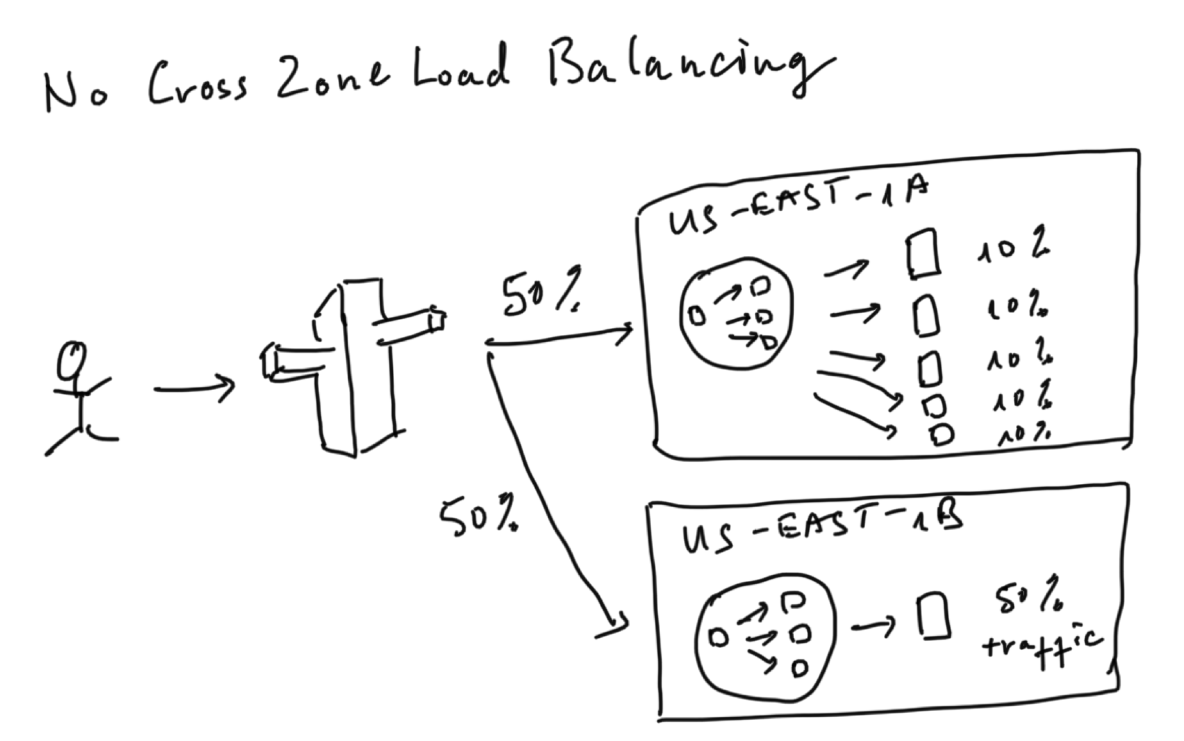 No Cross Zone Load Balancing
US-EAST-1A
50%
10%
10%
10%
10%
10%
50%
US-EAST-1B
50%
traffic